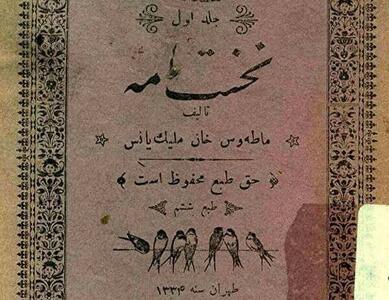 جلد اول
نخست نامه
تالیف
ماطه‌وس خان ملیك‌یانس
حق طبع محفوظ است
طبع ششم
طهران سنه ۱۳۳۴